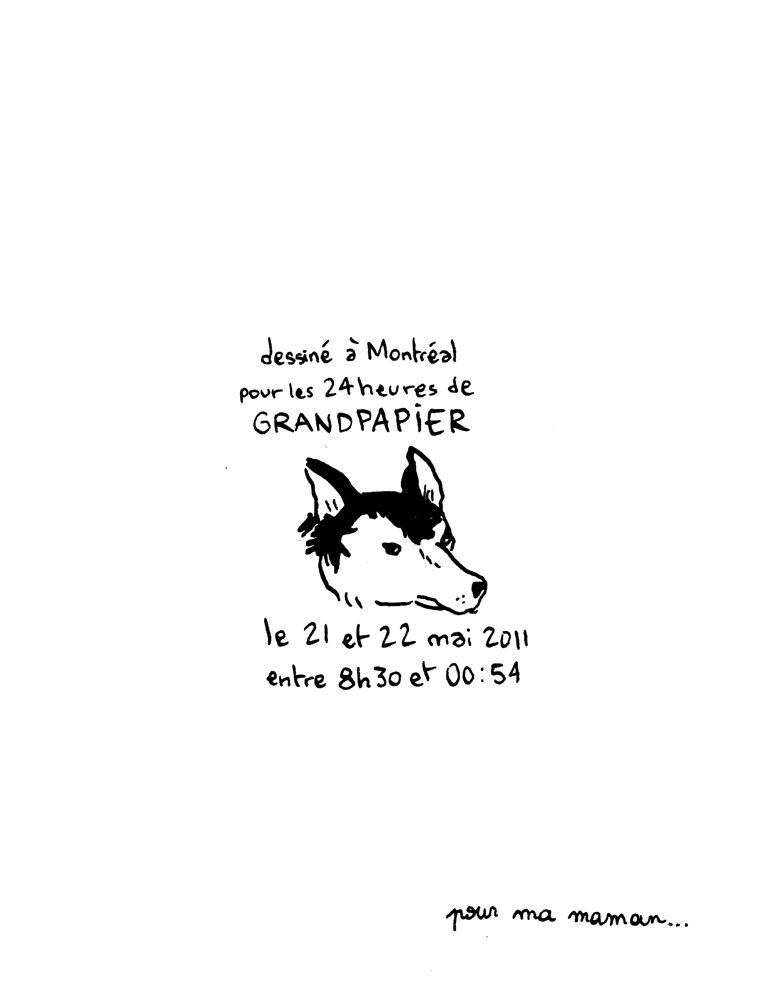 dessiné à Montréal
pour les 24 heures de
GRANDPAPiER
le 21 et 22 mai 2011
entre 8h30 et 00:54
pour ma maman...